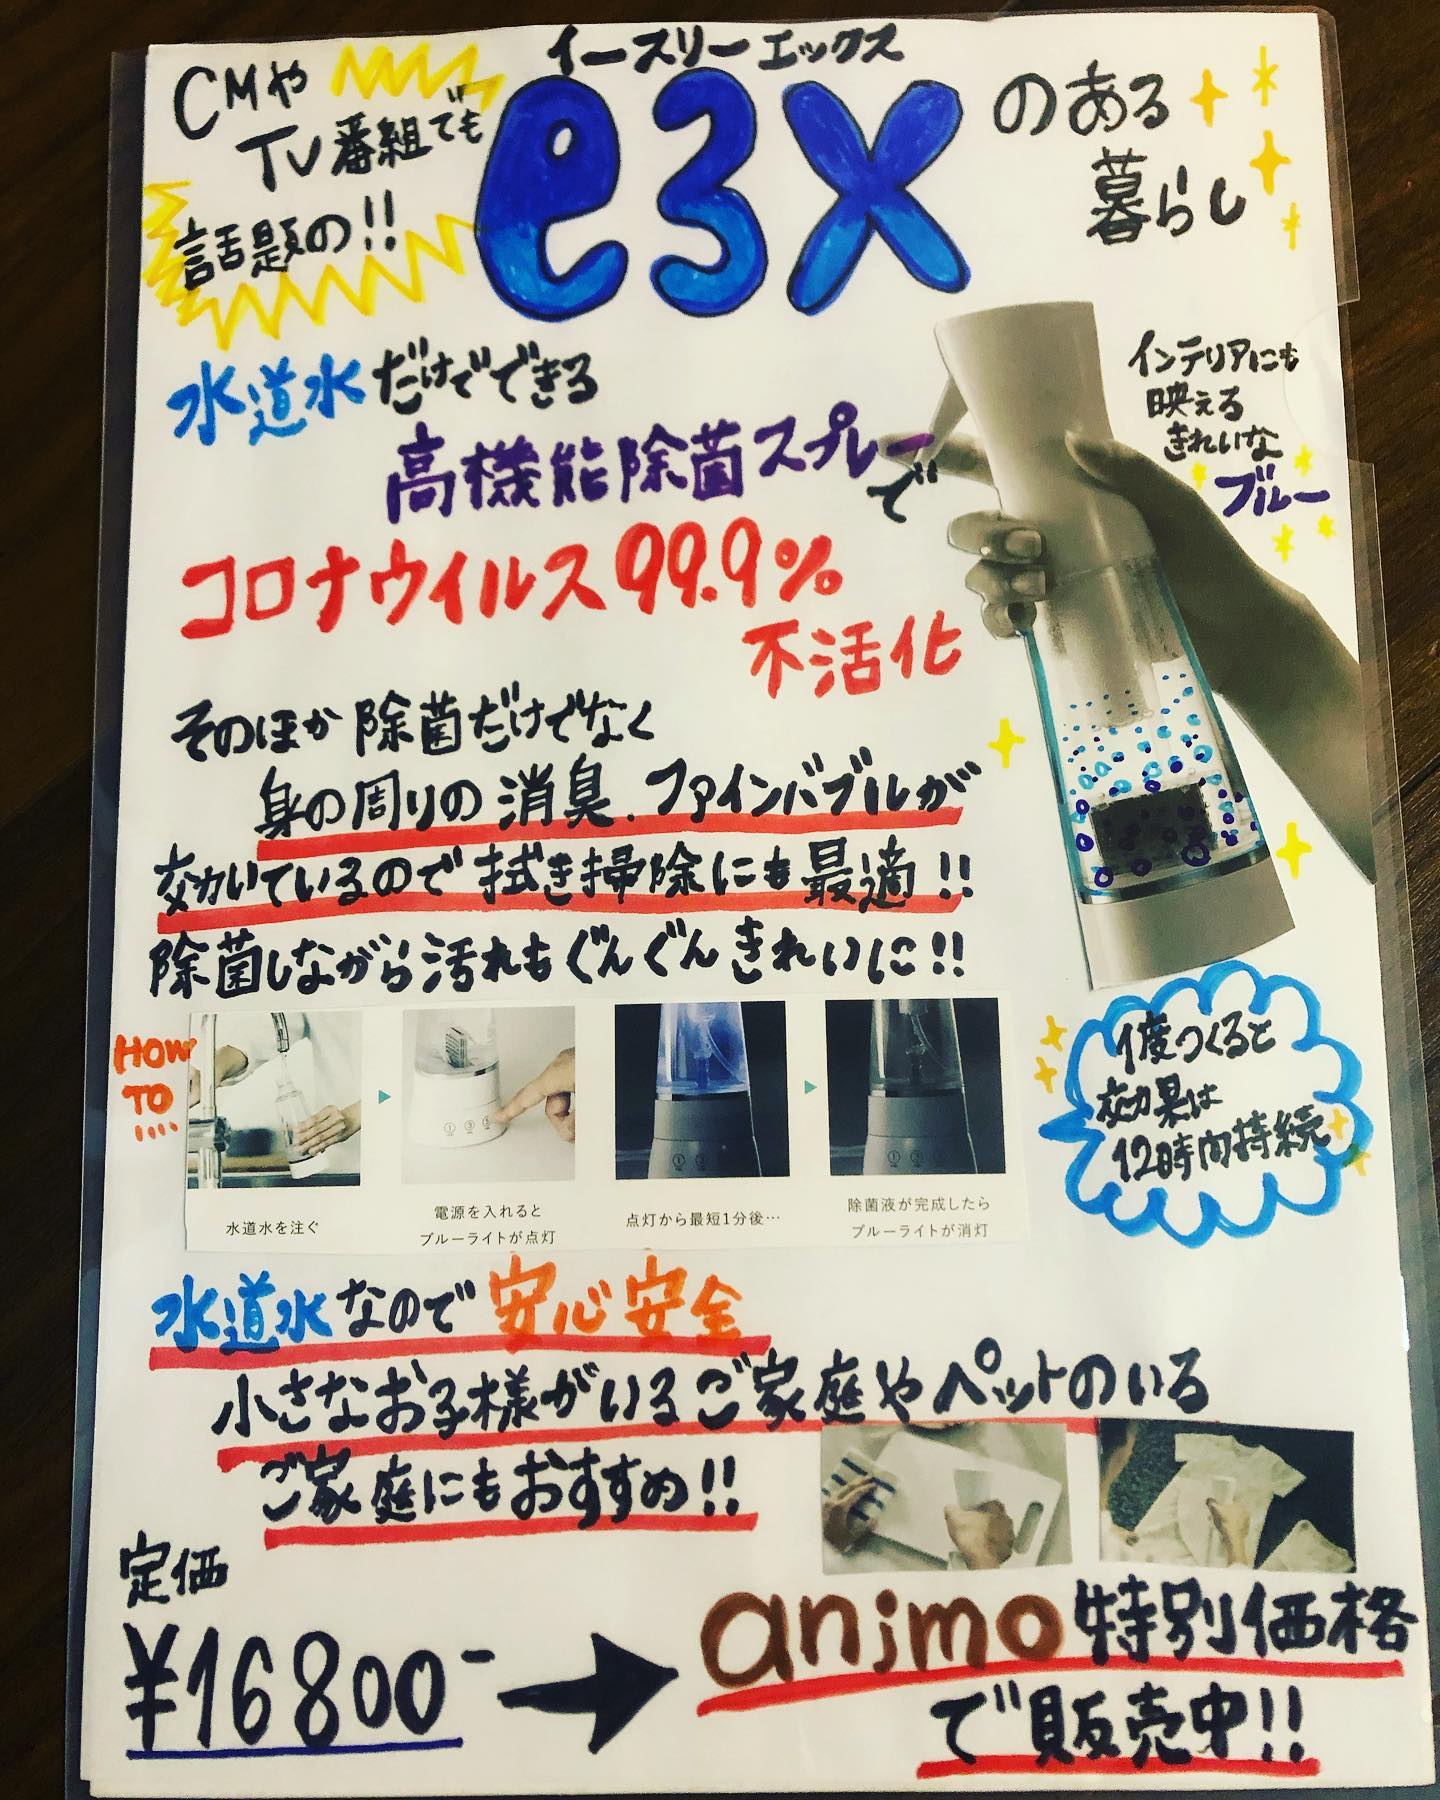 CMや
TV番組でも
話題の!!
イースリーエックス
e3x
のある
暮らし
水道水だけでできる
高機能除菌スプレーで
コロナウイルス99.9%
不活化
インテリアにも
映える
きれいな
ブルー
そのほか除菌だけでなく
身の周りの消臭、ファインバブルが
効いているので拭き掃除にも最適!!
除菌しながら汚れもぐんぐんきれいに!!
HOW
TO
水道水を注ぐ
電源を入れると
ブルーライトが点灯
点灯から最短1分後…
除菌液が完成したら
ブルーライトが消灯
1度つくると
効果は
12時間持続
水道水なので安心安全
小さなお子様がいるご家庭やペットのいる
ご家庭にもおすすめ!!
定価
¥16800-
animo特別価格
で販売中!!